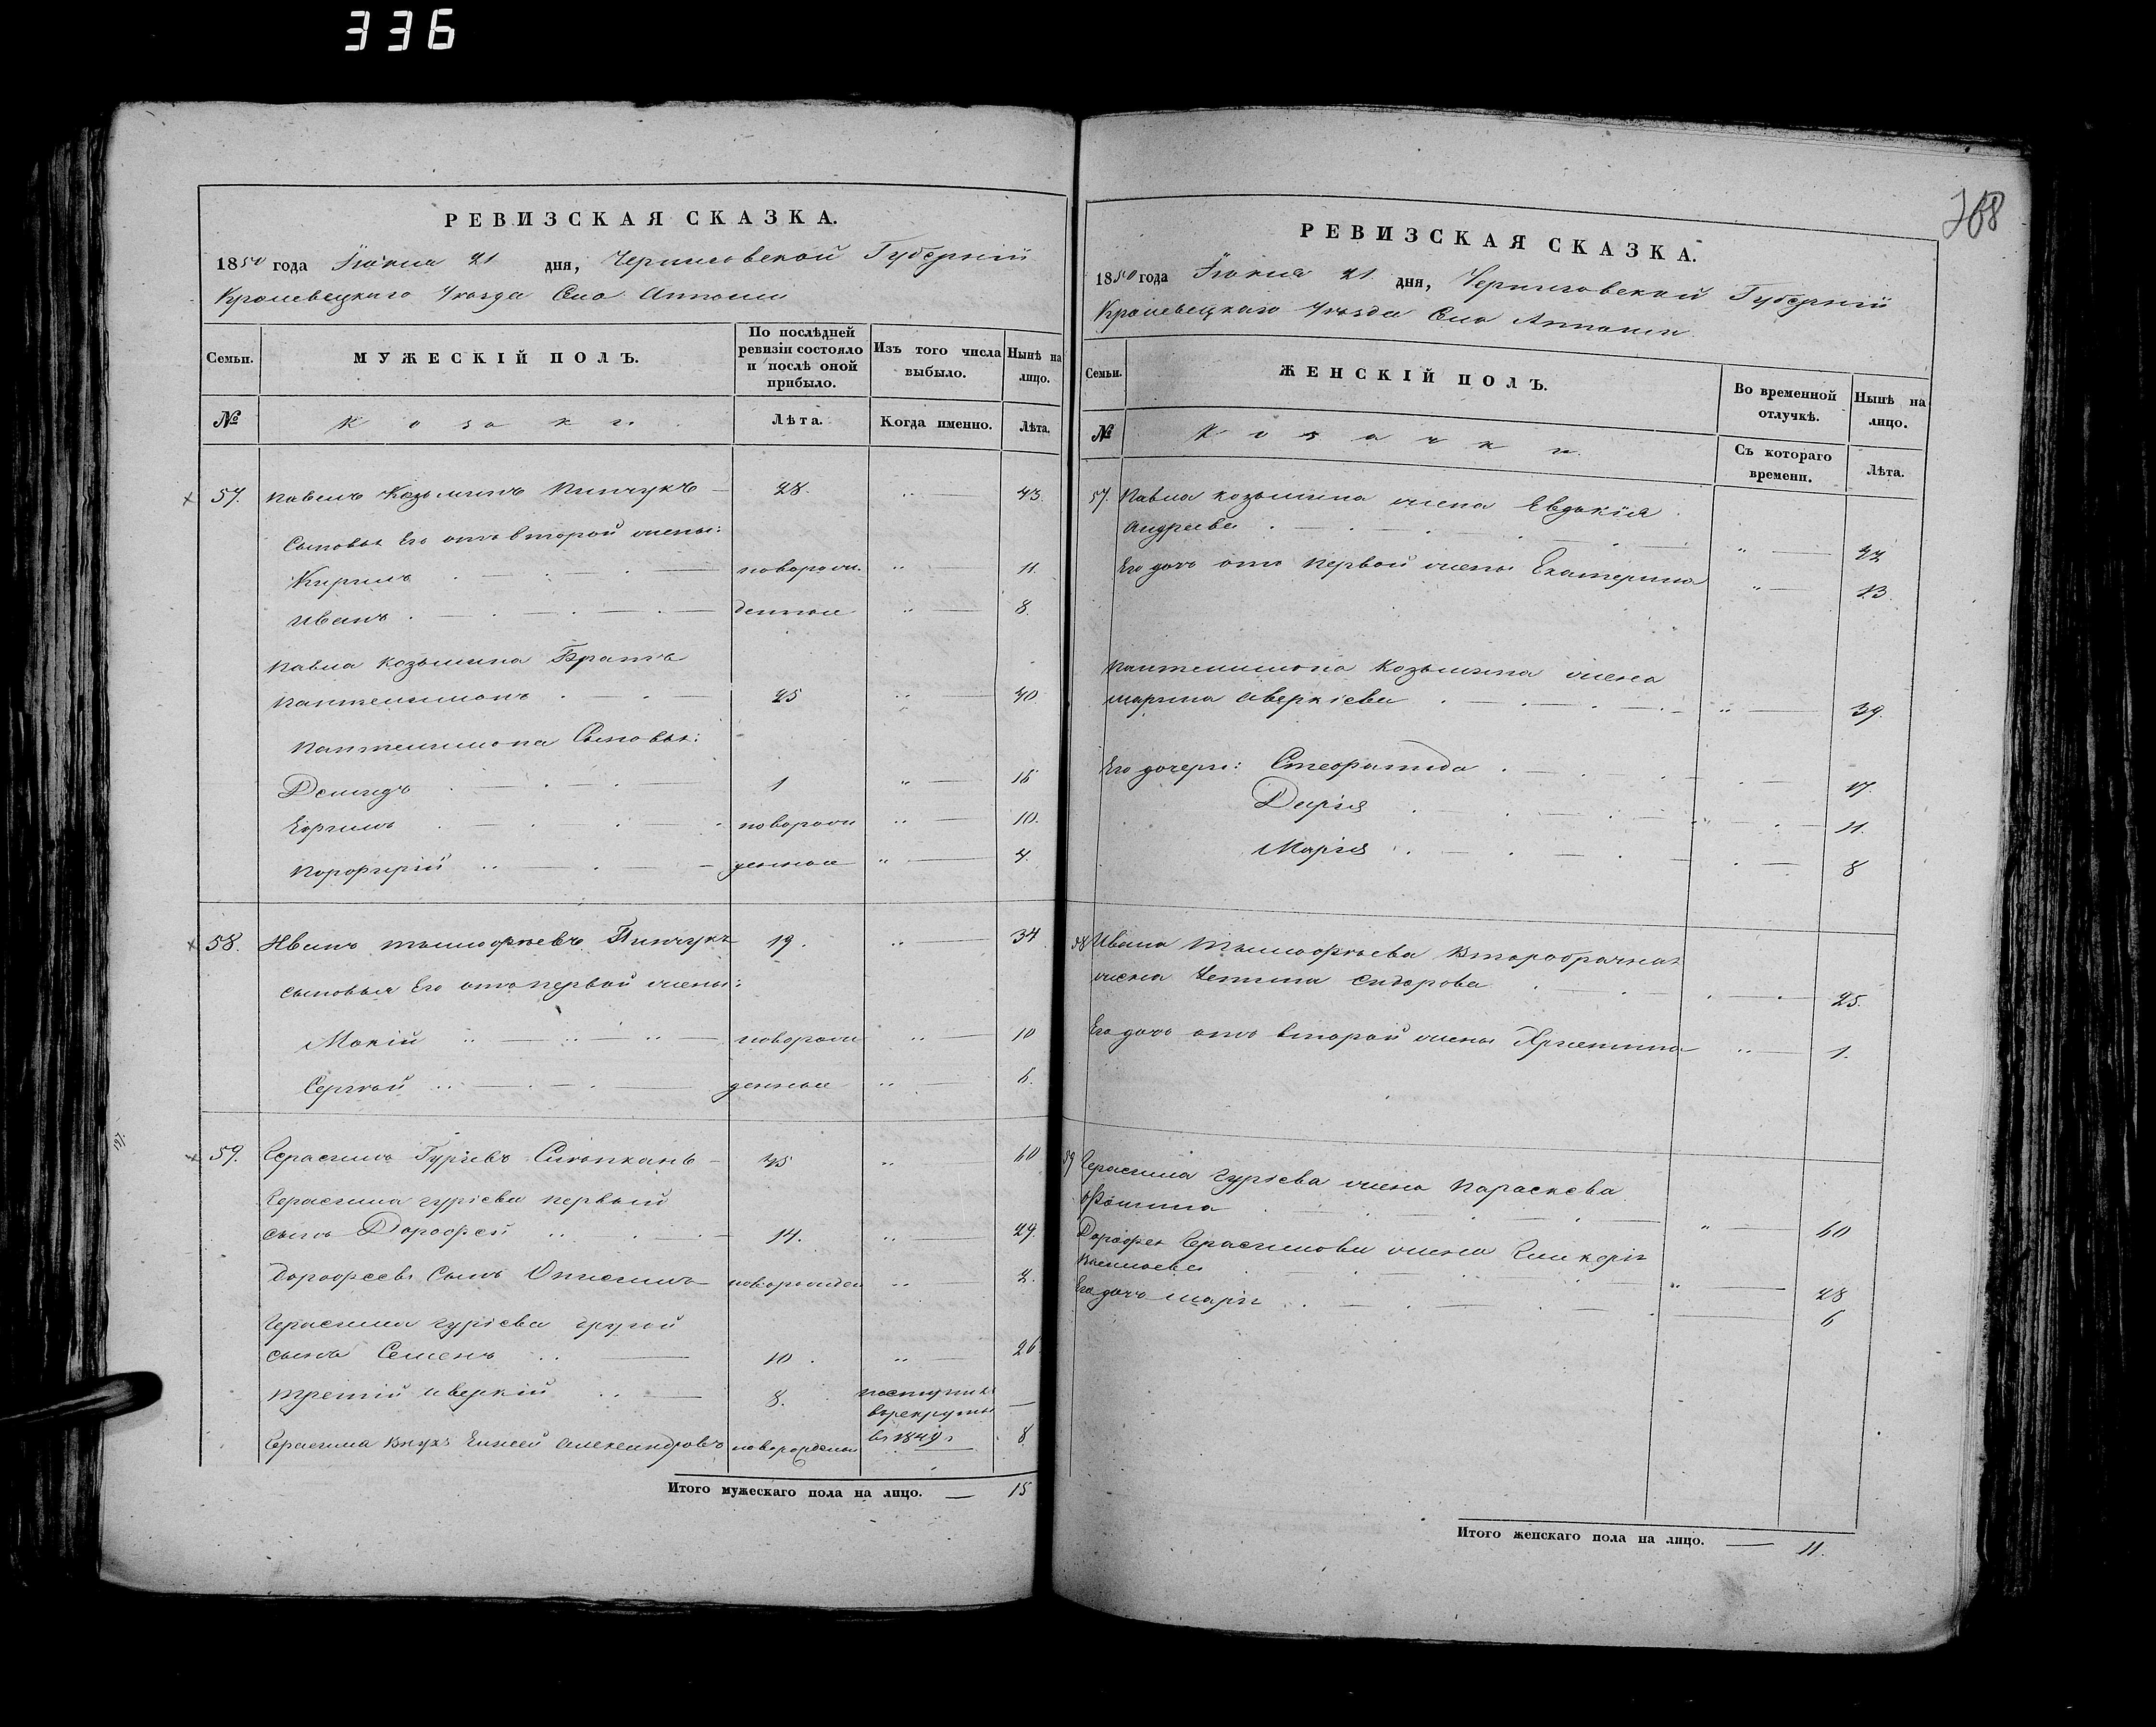 336
РЕВИЗСКАЯ СКАЗКА.
1850 года Іюня 21 дня, Черниговской Губерніи
Кролевецкаго Уѣзда
МУЖЕСКІЙ ПОЛЪ.
Семьи.
По послѣдней ревизіи состояло и послѣ оной прибыло.
Изъ того числа выбыло.
Нынѣ на лицо.
№
Козаки.
Лѣта.
Когда именно.
Лѣта.
57. Павелъ Козьминъ Пинчукъ 28. 43.
Сыновья Его отъ второй жены:
Кирилъ новорож 11.
Иванъ денные 8.
Павла Козьмина Братъ
Пантелимонъ 25 40.
Пантелимона Сыновья:
Демидъ 1 16
Ефимъ новорож 10.
Порфирій денные 4.
58. Иванъ Тимофѣевъ Пинчукъ 19. 34
сыновья Его отъ первой жены:
Мокій новорож 10
Сергѣй денные 6.
59. Герасимъ Гуріевъ 45 60
Герасима Гуріева первый
сынъ Дорофей 14. 29.
Дорофеевъ Сынъ Онисимъ новорожден 2.
Герасима Гуріева другой
сынъ Семенъ 10. 26.
третій Аверкій 8. поступилъ
въ рекруты
въ 1849 г
Герасима Внукъ Елисей Александровъ новорожденный 8.
Итого мужескаго пола на лицо. — 15
197.
368
РЕВИЗСКАЯ СКАЗКА.
1850 года Іюня 21 дня, Черниговской Губерніи
Кролевецкаго Уѣзда
Семьи.
ЖЕНСКІЙ ПОЛЪ.
Во временной отлучкѣ.
Нынѣ на лицо.
№
Козачки.
Съ котораго времени.
Лѣта.
57. Павла Козьмина жена Евдокія
Андреева 42
Его дочь отъ первой жены Екатерина 13.
Пантелимона Козьмина жена
Марина Аверкіева 39.
Его дочери: 17.
Дарія 11.
Марія 8
58 Ивана Тимофѣева Второбрачная
жена Сидорова 25.
Его дочь отъ второй жены Христина 1.
59 Герасима Гуріева жена Параскева
Фомина 60
Дорофея Герасимова жена Гликерія
28
Его дочь Марія 6
Итого женскаго пола на лицо. — 11.